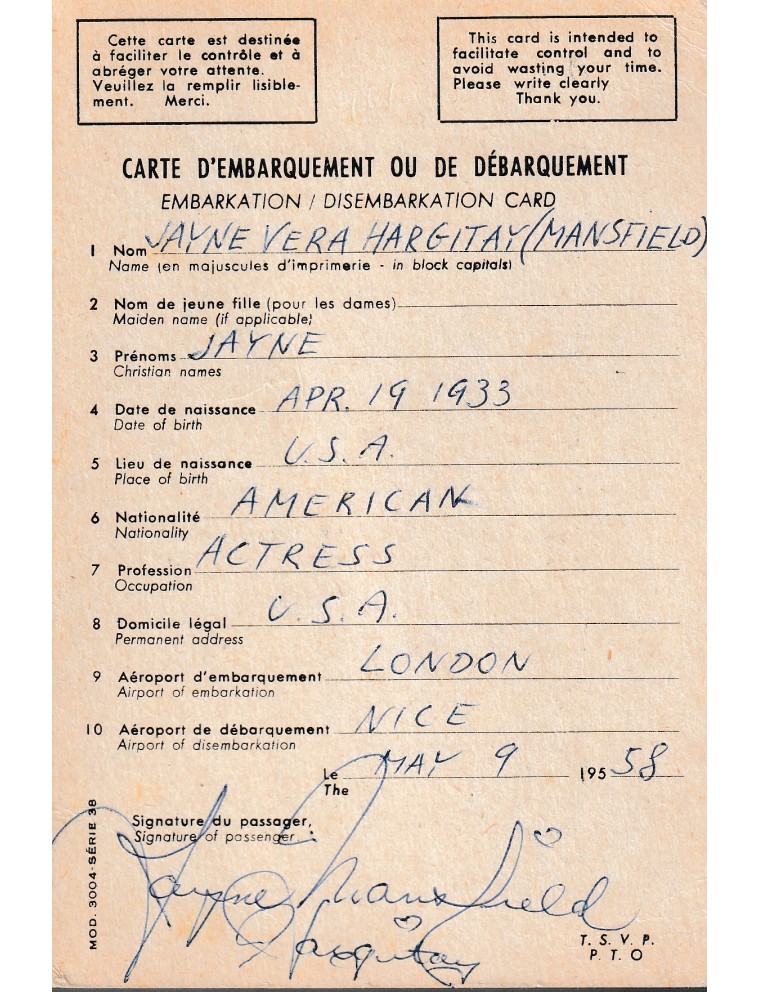 Cette carte est destinée
à faciliter le contrôle et à
abréger votre attente.
Veuillez la remplir lisible-
ment. Merci.
This card is intended to
facilitate control and to
avoid wasting your time.
Please write clearly
Thank you.
CARTE D'EMBARQUEMENT OU DE DÉBARQUEMENT
EMBARKATION / DISEMBARKATION CARD
1 Nom JAYNE VERA HARGITAY (MANSFIELD)
Name (en majuscules d'imprimerie - in block capitals)
2 Nom de jeune fille (pour les dames)
Maiden name (if applicable)
3 Prénoms JAYNE
Christian names
4 Date de naissance APR. 19 1933
Date of birth
5 Lieu de naissance U.S.A.
Place of birth
6 Nationalité AMERICAN
Nationality
7 Profession ACTRESS
Occupation
8 Domicile légal U.S.A.
Permanent address
9 Aéroport d'embarquement LONDON
Airport of embarkation
10 Aéroport de débarquement NICE
Airport of disembarkation
Le MAY 9 195 58
The
Signature du passager,
Signature of passenger :
Jayne Mansfield
Hargitay
T. S. V. P.
P. T. O
MOD. 3004-SÉRIE 38